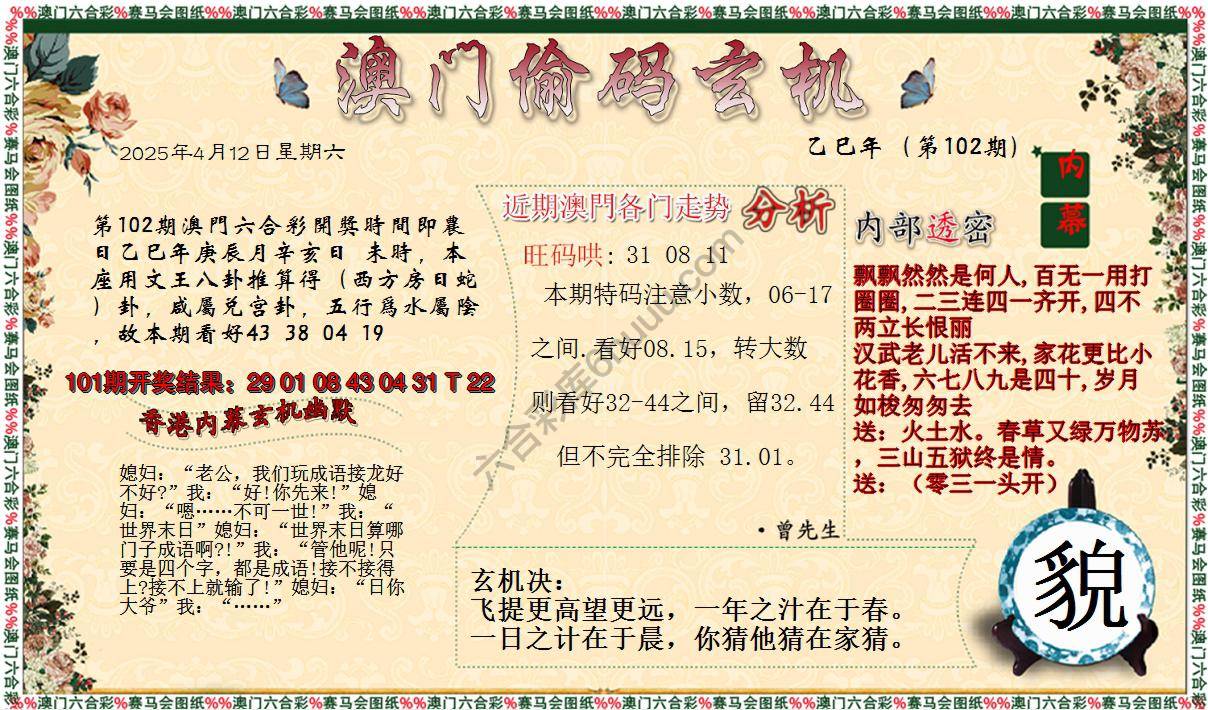 %%澳门六合彩%赛马会图纸%%澳门六合彩%赛马会图纸%%澳门六合彩%赛马会图纸%%澳门六合彩%赛马会图纸%%澳门六合彩%赛马会图纸%%澳门六合彩%赛马会图纸%%
澳门偷码玄机
2025年4月12日星期六
乙巳年（第102期）
内
幕
第102期澳門六合彩開獎時間即農
日乙巳年庚辰月辛亥日 未時，本
座用文王八卦推算得（西方房日蛇
）卦，咸屬兑宫卦，五行爲水屬陰
，故本期看好43 38 04 19
101期开奖结果：29 01 08 43 04 31 T 22
香港内幕玄机幽默
媳妇：“老公，我们玩成语接龙好
不好?”我：“好!你先来!”媳
妇：“嗯……不可一世!”我：“
世界末日”媳妇：“世界末日算哪
门子成语啊?!”我：“管他呢!只
要是四个字，都是成语!接不接得
上?接不上就输了!”媳妇：“日你
大爷”我：“……”
近期澳門各门走势 分析
旺码哄: 31 08 11
本期特码注意小数，06-17
之间.看好08.15，转大数
则看好32-44之间，留32.44
但不完全排除 31.01。
·曾先生
内部透密
飘飘然然是何人,百无一用打
圈圈,二三连四一齐开,四不
两立长恨丽
汉武老儿活不来,家花更比小
花香,六七八九是四十,岁月
如梭匆匆去
送：火土水。春草又绿万物苏
，三山五狱终是情。
送：（零三一头开）
玄机决：
飞提更高望更远，一年之汁在于春。
一日之计在于晨，你猜他猜在家猜。
貌
%%澳门六合彩%赛马会图纸%%澳门六合彩%赛马会图纸%%澳门六合彩%赛马会图纸%%澳门六合彩%赛马会图纸%%澳门六合彩%赛马会图纸%%澳门六合彩%赛马会图纸%%